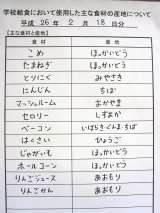 学校給食において使用した主な食材の産地について
平成 26 年 2 月 18 日分
【主な食材と産地】
食材 産地
こめ ほっかいどう
たまねぎ ほっかいどう
とりにく みやざき
にんじん ちば
マッシュルーム おかやま
セロリー しずおか
ベーコン いばらき・ぐんま・ちば
はくさい ひょうご
じゃがいも ほっかいどう
ホールコーン ほっかいどう
りんごジュース あおもり
りんごかん あおもり